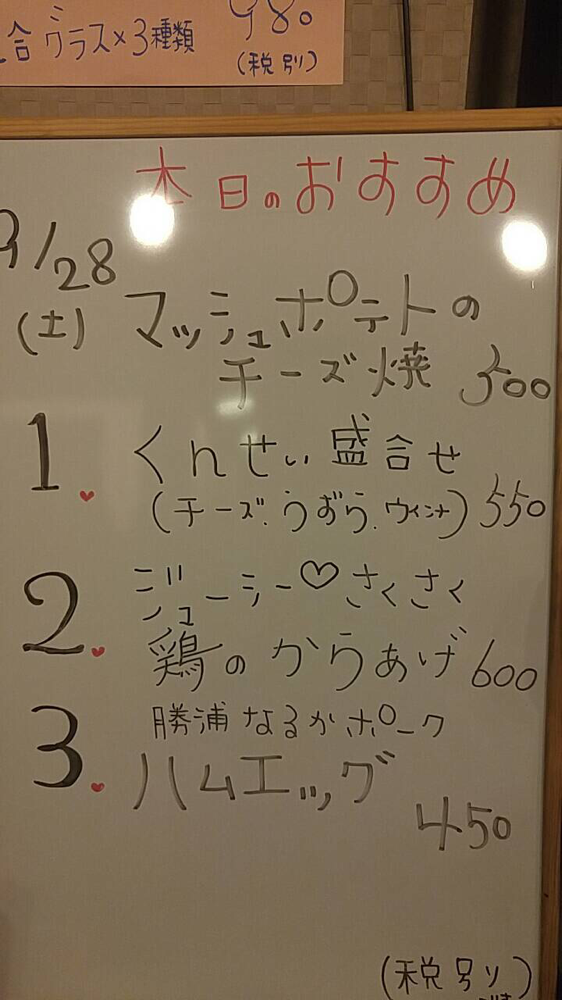 合 グラス×3種類 980
(税別)
本日のおすすめ
9/28
(土) マッシュポテトの
チーズ焼 500
1. くんせい盛合せ
(チーズ.うずら.ウィンナ) 550
2. ジューシー♡さくさく
鶏のからあげ 600
3. 勝浦なるかポーク
ハムエッグ
450
(税別)